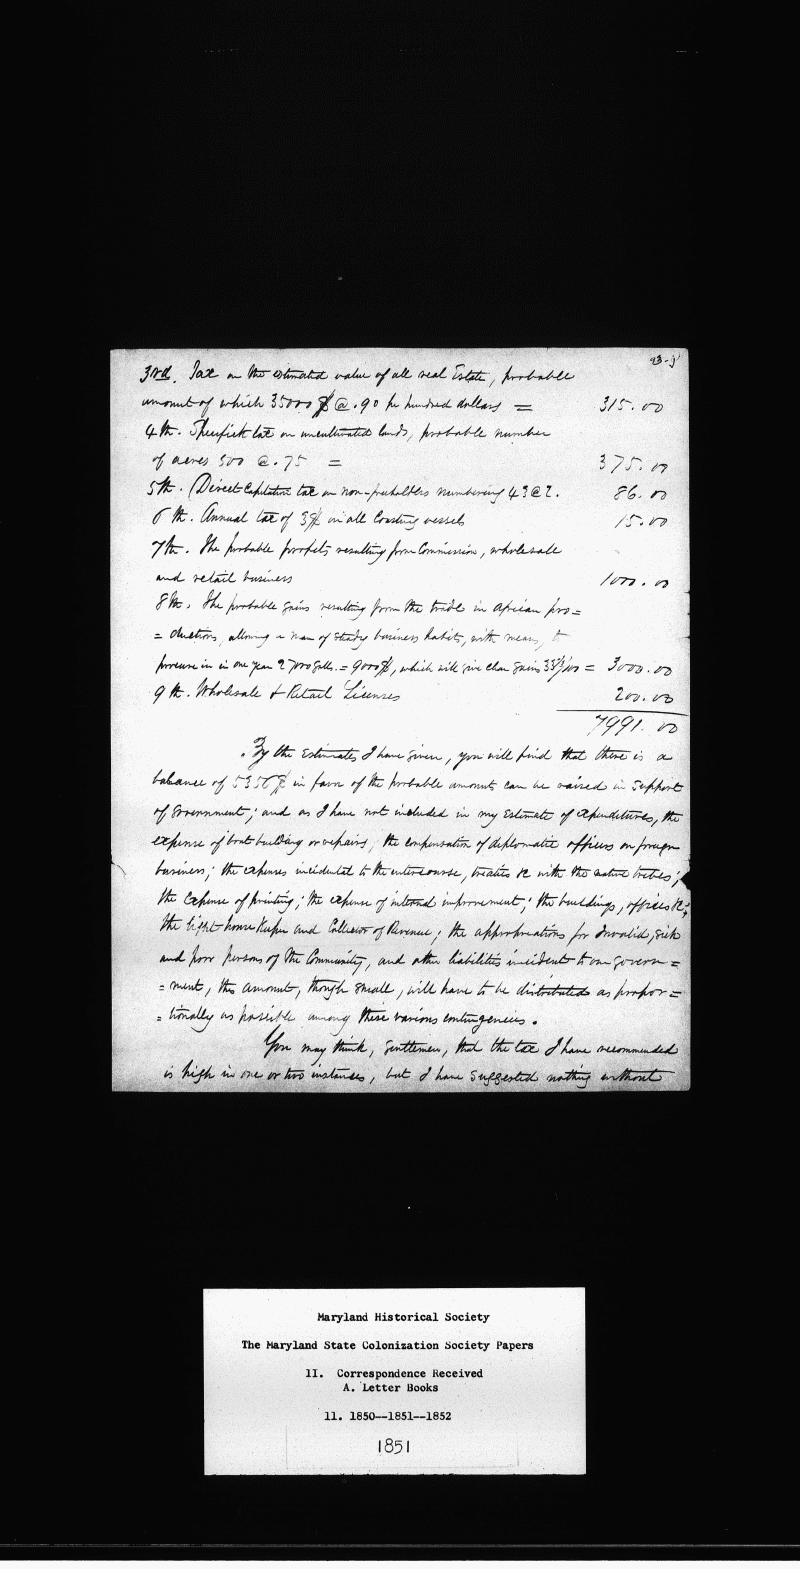 3rd. Tax on the estimated value of all real Estate, probable
amount of which 35000$ @ .90 per hundred dollars = 315.00
4th. Specifick tax on uncultivated lands, probable number
of acres 500 @ .75 = 375.00
5th. Direct Capitation tax on non-freeholders numbering 43 @ 2. 86.00
6th. Annual tax of 3$ on all Coasting vessels 15.00
7th. The probable profits resulting from Commission, wholesale
and retail business 1000.00
8th. The probable gains resulting from the trade in African pro=
= ductions, allowing a man of steady business habits, with means, to
procure in in one year 2 galls. = 9000$, which will give clear gains 33 1/3/100 = 3000.00
9th. Wholesale & Retail Licenses 200.00
7991.00
By the Estimates I have given, you will find that there is a
balance of 5356$ in favor of the probable amount can be raised in support
of Government; and as I have not included in my Estimate of expenditures, the
expense of boat building or repairs; the compensation of diplomatic officers on foreign
business; the expenses incidental to the intercourse, treaties &c with the native tribes;
the expense of printing; the expense of internal improvement; the buildings, offices &c;
the light house Keeper and Collector of Revenue; the appropriations for Invalid, sick
and poor persons of the Community, and other liabilities incident to our govern=
= ment, this amount, though small, will have to be distributed as propor=
= tionally as possible among these various contingencies.
You may think, Gentlemen, that the tax I have recommended
is high in one or two instances, but I have suggested nothing without
Maryland Historical Society
The Maryland State Colonization Society Papers
11. Correspondence Received
A. Letter Books
11. 1850--1851--1852
1851